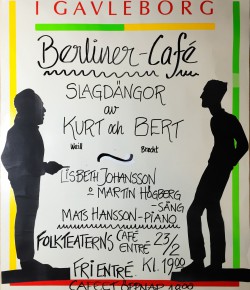 I GÄVLEBORG
Berliner-Café
SLAGDÄNGOR
av
KURT och BERT
Weill Brecht
~
LISBETH JOHANSSON
o MARTIN HÖGBERG
-SÅNG
MATS HANSSON-PIANO
FOLKTEATERN'S CAFÉ ENTRÉ 23/2
FRI ENTRÉ KL. 19.00
CAFÉET ÖPPNAR